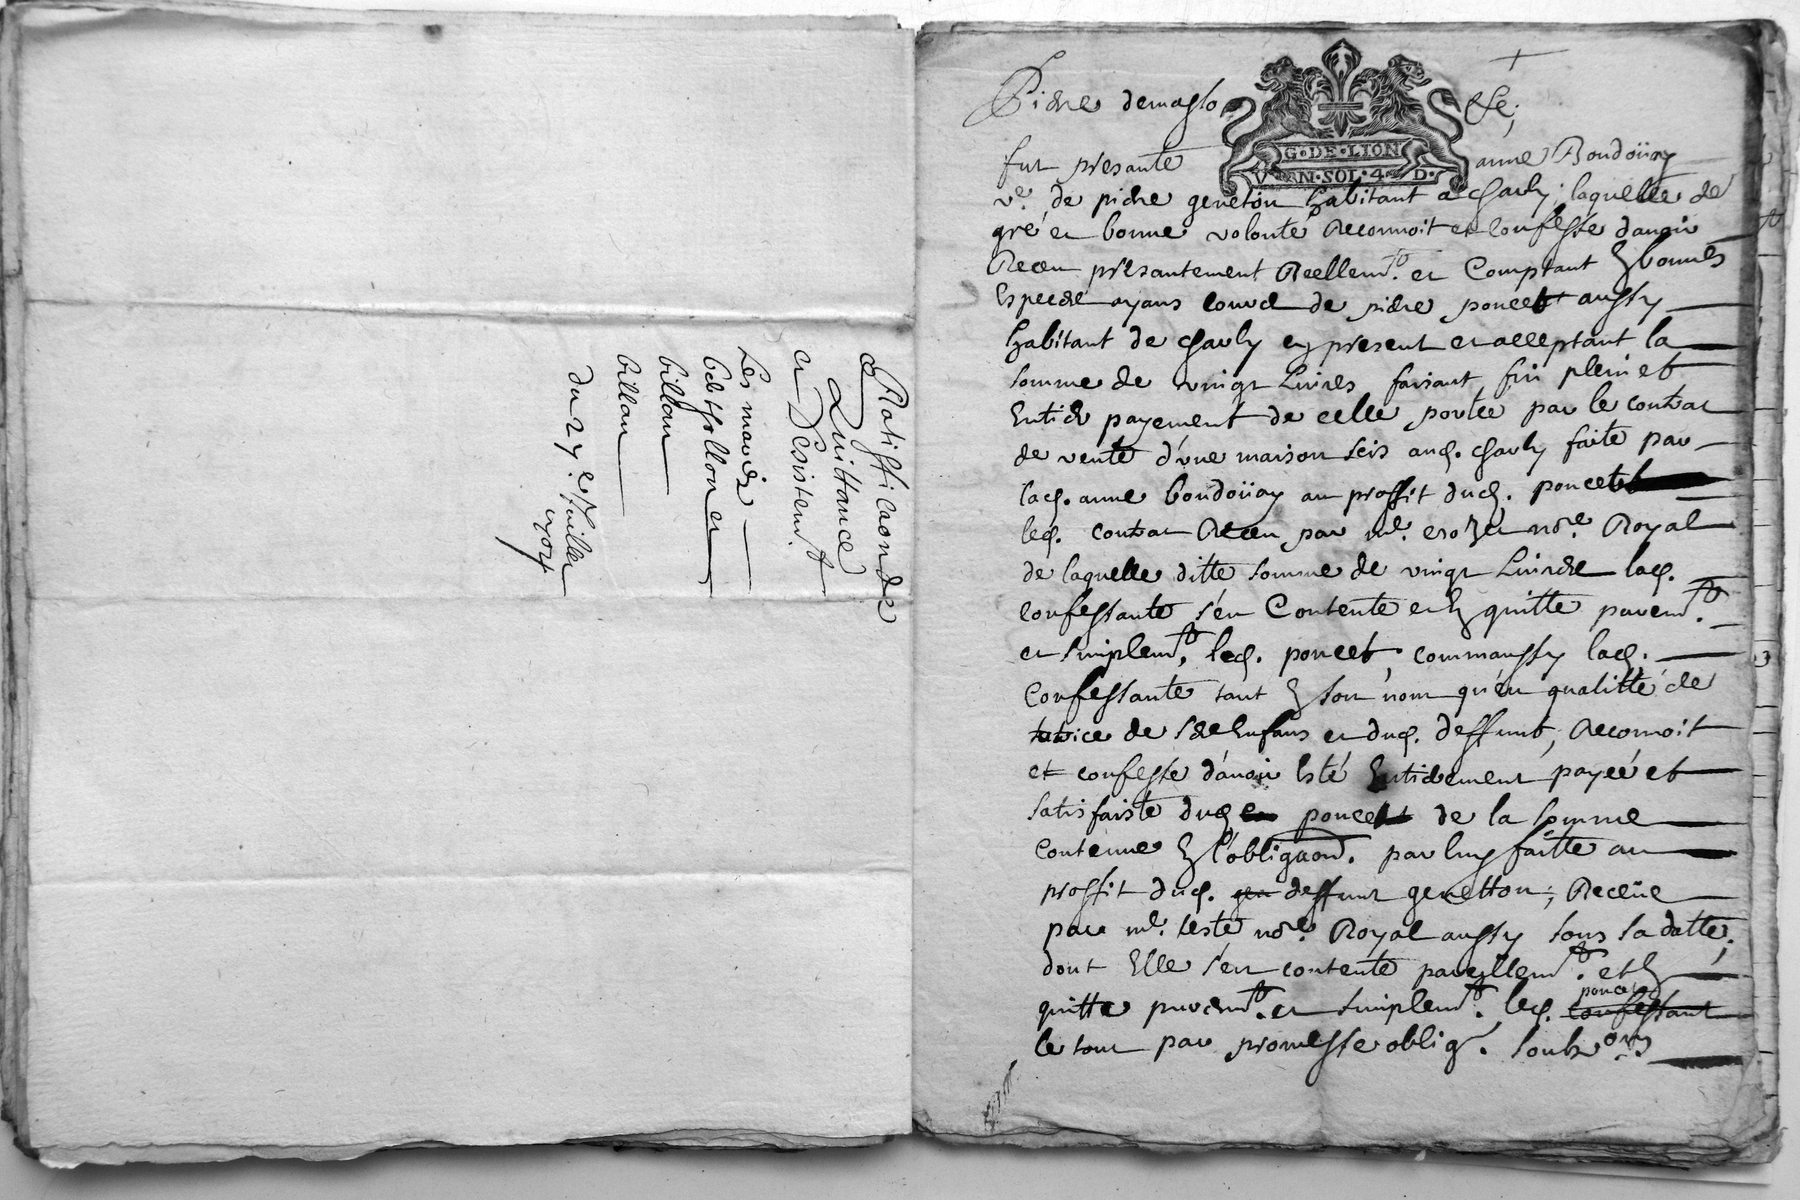 Ratiffica͠on de
Quittance
et Desistem.t
Les mariéz
berthollon et
billon
billon
du 27.e Juillet
1704
Pierre demaslo &c;
G·DE·LION
V AN·SOL·4·D·
fut presante anne Boudoüay
v.e de pierre geneton habitant a charly laquelle de
gré et bonne volonté Reconnoit et confesse d'avoir
Receu présantement Reellem.t et Comptant en bonnes
Especes ayans cours de pierre poncet aussy
habitant de charly cy present et acceptant la
somme de vingt Livres faisant fin plein et
Entier payement de celle portée par le contrat
de vente d'une maison scis aud. charly faite par
lad. anne boudoüay au proffit dud. poncet
led. contrat Receu par m.e no.re Royal
de laquelle ditte somme de vingt Livres lad.
confessante s'en Contente et en quitte purem.t
et simplem.t led. poncet, commaussy lad.
Confessante tant en son nom qu'en qualitté de
tutrice de ses Enfans et dud. deffunt, Reconnoit
et confesse d'avoir Esté Entierement payéé et
satisfaiste dud poncet de la somme
contenue en l'obliga͠on. par luy faitte au
proffit dud. gen deffunt genetton; Receüe
par m.e teste no.re Royal aussy sous sa datte;
dont Elle s'en contente pareillem.t et en
quitte purem.t et simplem.t led. confessant poncet
le tout par promesse oblig. soubz ons